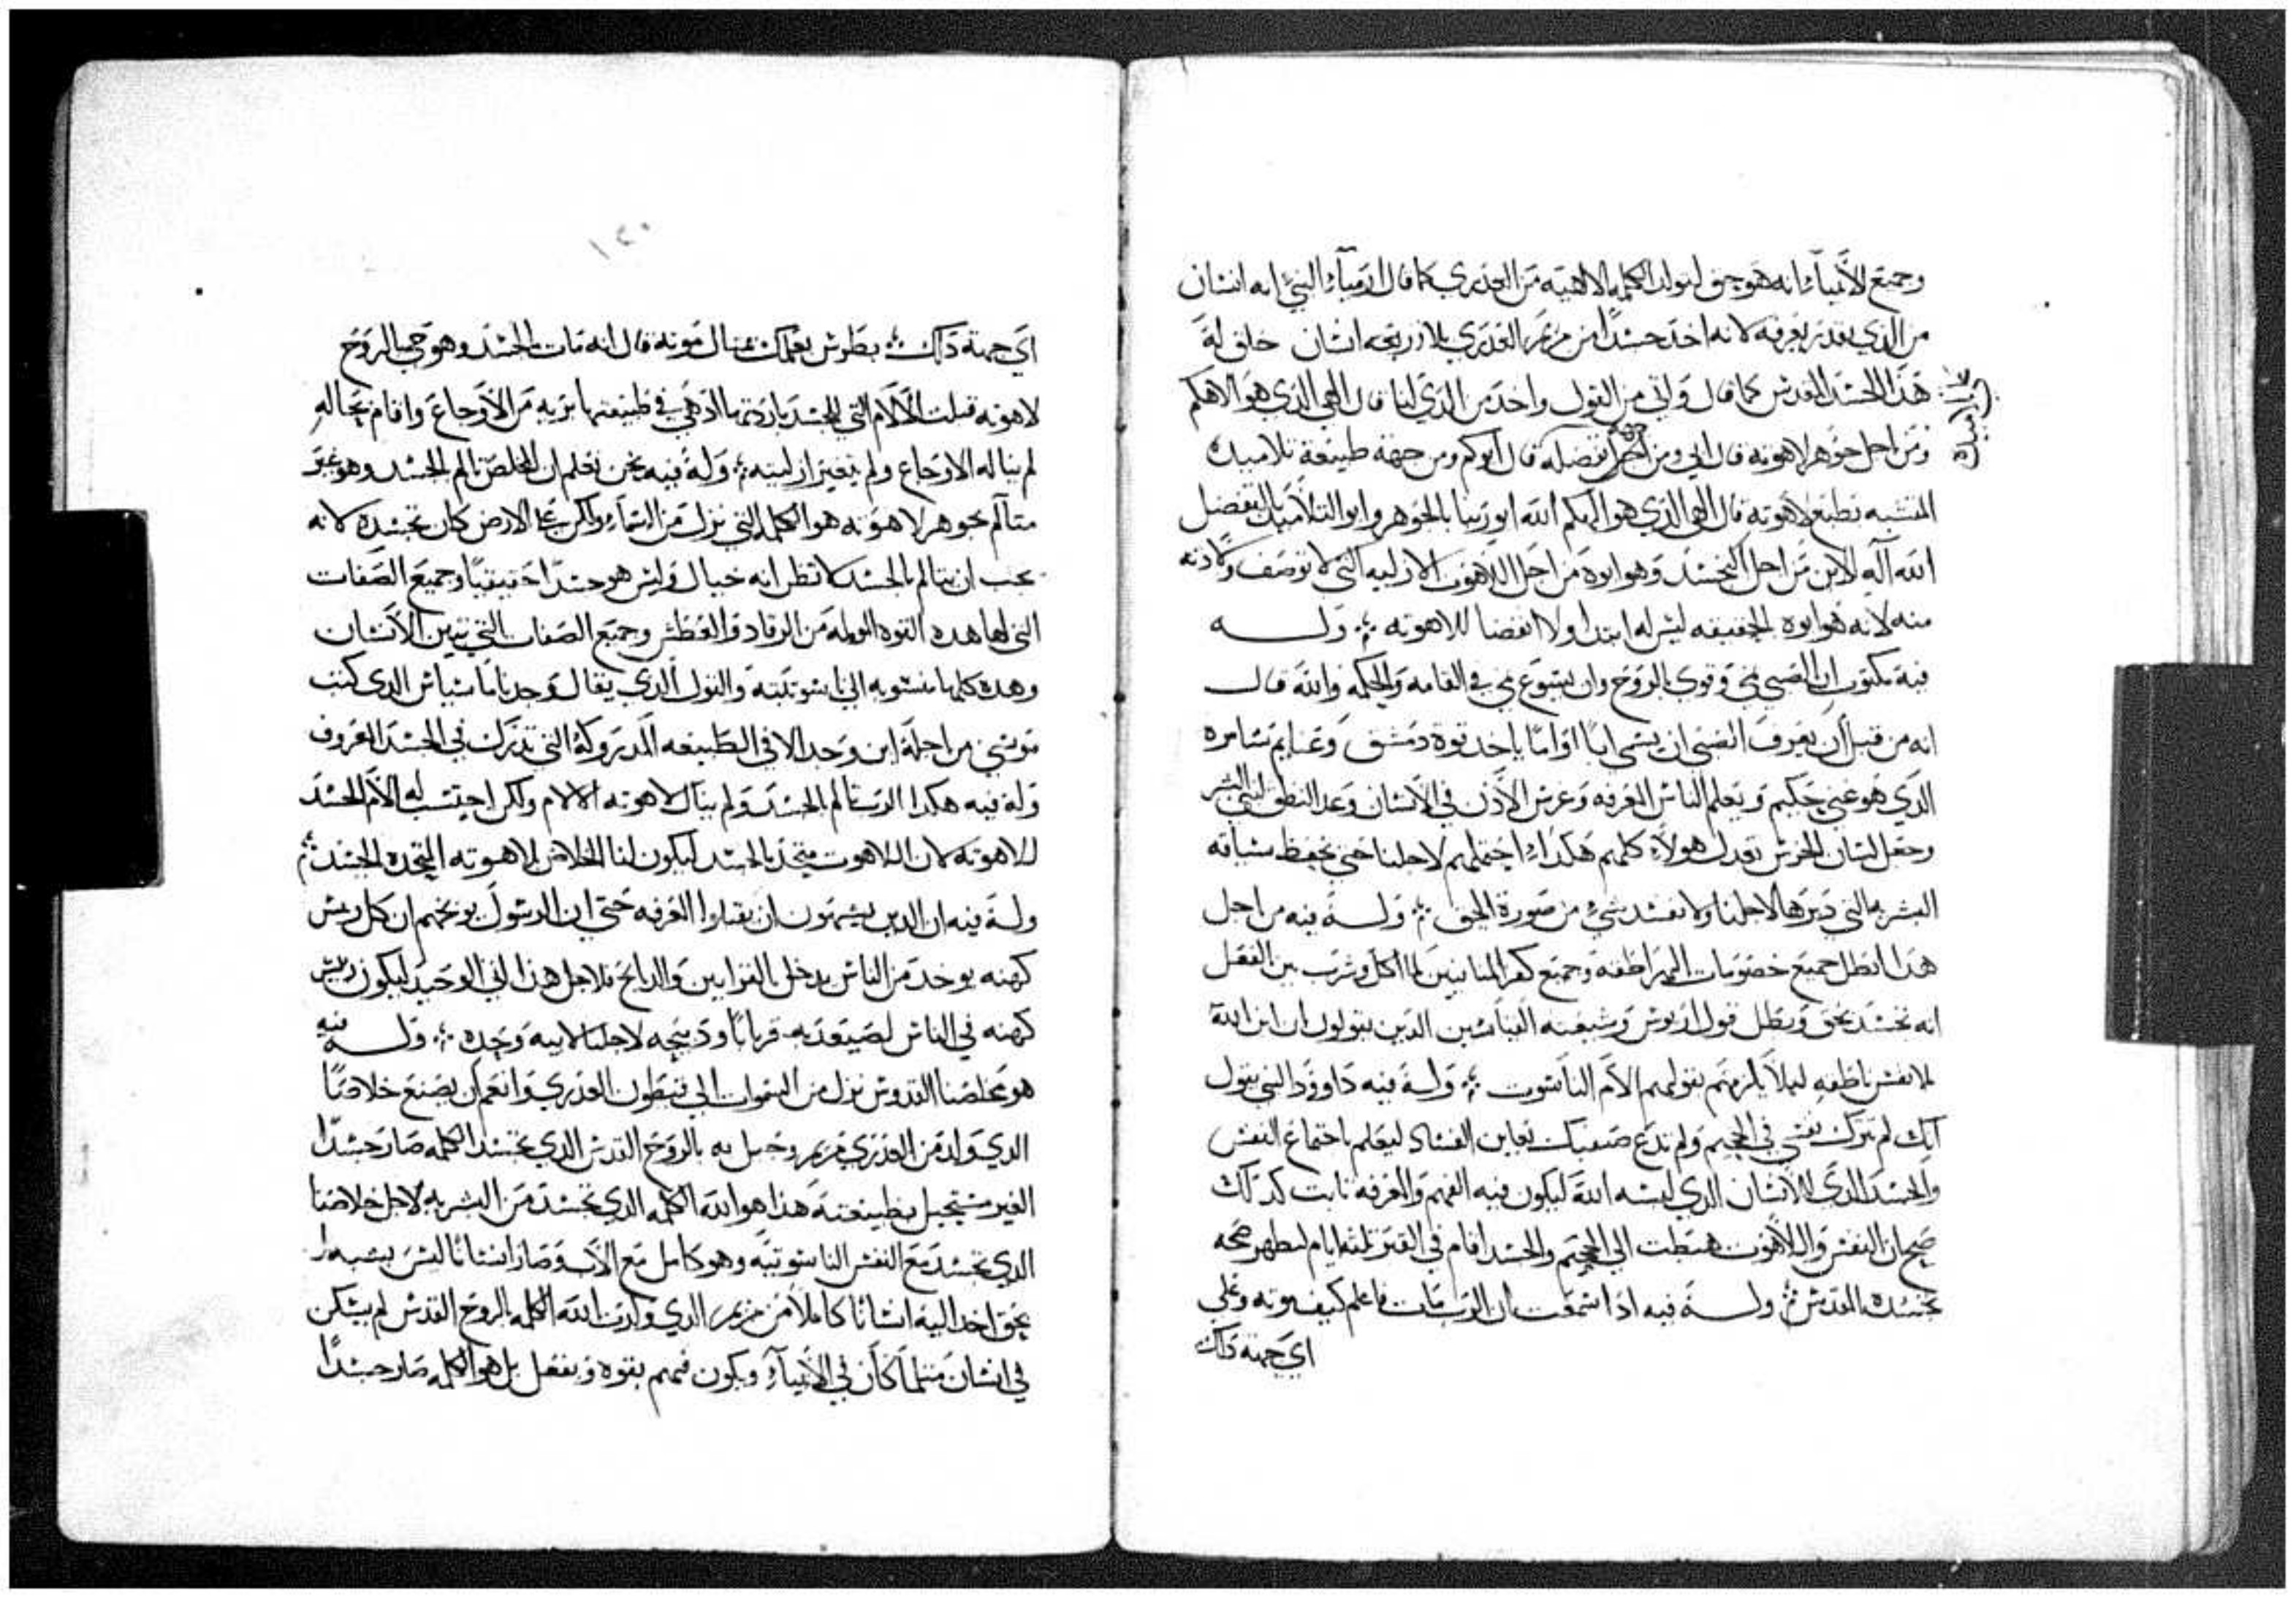 وجميع الأنبياء انه هو بحق لتولد الكلمه الالاهيه من العذري كما قال ارمياء النبي انه انسان
من الذي يقدر يعرفه لانه اخد جسدا من مريم العذري بلا زريعه انسان خلق له
هذا الجسد المقدس كما قال واتي من القول واحد من الذي لنا قال الهي الذي هو الاهكم
ومن اجل جوهر لاهوته قال ابي ومن اجل تفضله قال ابوكم ومن جهة طبيعة تلاميده
تلاميده
المتشبه بطبع لاهوته قال الهي الذي هو الهكم الله ابو ربنا بالجوهر وابو التلاميد بالتفضل
الله اله الابن من اجل التجسد وهو ابوه من اجل اللاهوت الازليه التي لا توصف ولادته
منه لانه هو ابوه بالحقيقه ليس له ابتدا ولا انقضا للاهوته ⁘ وله
فيه مكتوب ان الصبي نمي وقوي بالروح وان يسوع نمي في القامه والحكمه والله قال
انه من قبل ان يعرف الصبي ان يسمي ابا او اما ياخد قوة دمشق وغنايم سامره
الذي هو غني حكيم ويعلم الناس المعرفه وغرس الادن في الانسان وعد النطق لبني البشر
وجعل لسان الخرس تعدل هولاء كلهم هكذا احتملهم لاجلنا حتي يحفظ سياقه
البشريه التي دبرها لاجلنا ولا تفسد شيء من صورة الحق ⁘ وله فيه من اجل
هذا ابطل جميع خصومات الهراطقه وجميع كفر المنانيين لما اكل وشرب بين الفعل
انه تجسد بحق وبطل قول اريوس وشيعته اليابسين الدين يقولون ان ابن الله
بلا نفس ناطقه ليلا يلزمهم بقولهم الام الناسوت ⁘ وله فيه داوود النبي يقول
انك لم تترك نفسي في الجحيم ولم تدع صفيك يعاين الفساد ليعلم باجتماع النفس
والجسد الذي للانسان الذي لبسه الله ليكون فيه الفهم والمعرفه ثابت كدلك
صحيح ان النفس واللاهوت هبطت الي الجحيم والجسد اقام في القبر تلثه ايام ليظهر صحه
تجسده المقدس ⁘ وله فيه ادا سمعت ان الرب مات فاعلم كيف موته وعلي
اي جهة دلك
١٢٠
اي جهة داك ⁘ بطرس يعلمك مثال موته قال انه مات بالجسد وهو حي بالروح
لاهوته قبلت الالام التي للجسد بارادتها اد هي في طبيعتها بريه من الاوجاع واقام بحاله
لم يناله الاوجاع ولم يتغير ازليته ⁘ وله فيه نحن نعلم ان المخلص تالم بالجسد وهو غير
متألم بجوهر لاهوته هو الكلمه التي نزل من السماء ولكن علي الارض كان تجسده لانه
يجب ان يتالم بالجسد لا تظن انه خيال وليس هو جسدا حقيقيا وجميع الصفات
التي لها هده القوه الواحده من الرقاد والعطش وجميع الصفات التي تبين الانسان
وهده كلها منسوبه الي ناسوتيته والقول الذي يقال وجدنا ماسياس الدي كتب
موسي من اجله اين وجد الا في الطبيعه المدروكه التي تدرك في الجسد المعروف
وله فيه هكدا الرب تالم بالجسد ولم ينال لاهوته الالام ولكن احتسب له الام الجسد
للاهوته لان اللاهوت متحد بالجسد ليكون لنا الخلاص بلاهوته المتحده بالجسد ⁘
وله فيه ان الدين يشتهون ان يقبلوا المعرفه حتي ان الرسول يوبخهم ان كل ريس
كهنه يوخد من الناس يدخل بالقرابين والدبايح فلاجل هذا اتي الوحيد ليكون ريس
كهنه في الناس لصيعد به قربانا ودبيحه لاجلنا لابيه وحده ⁘ وله فيه
هو مخلصنا القدوس نزل من السموات الي بطون العذري وانعم ان يصنع خلاصنا
الدي ولد من العذري مريم وحبل به بالروح القدس الدي تجسد الكلمه صار جسدا
الغير مستحيل بطبيعته هذا هو الله الكلمه الدي تجسد من البشريه لاجل خلاصنا
الدي تجسد مع النفس الناسوتيه وهو كامل مع الاب وصار انسانا ليس يشبه
بحق اخد اليه انسانا كاملا من مريم الدي ولدت الله الكلمه بالروح القدس لم يسكن
في انسان مثلما كان في الأنبياء ويكون فيهم بقوه وبفعل بل هو الكلمه صار جسدا